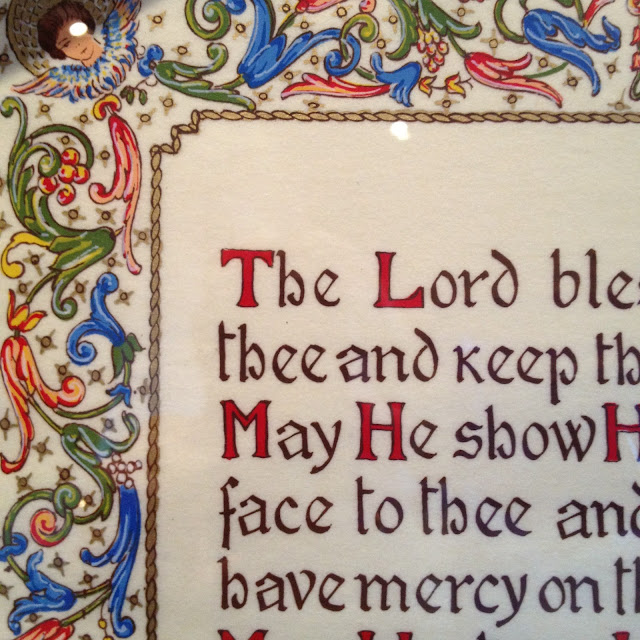 The Lord bles
thee and keep th
May He show H
face to thee and
have mercy on th